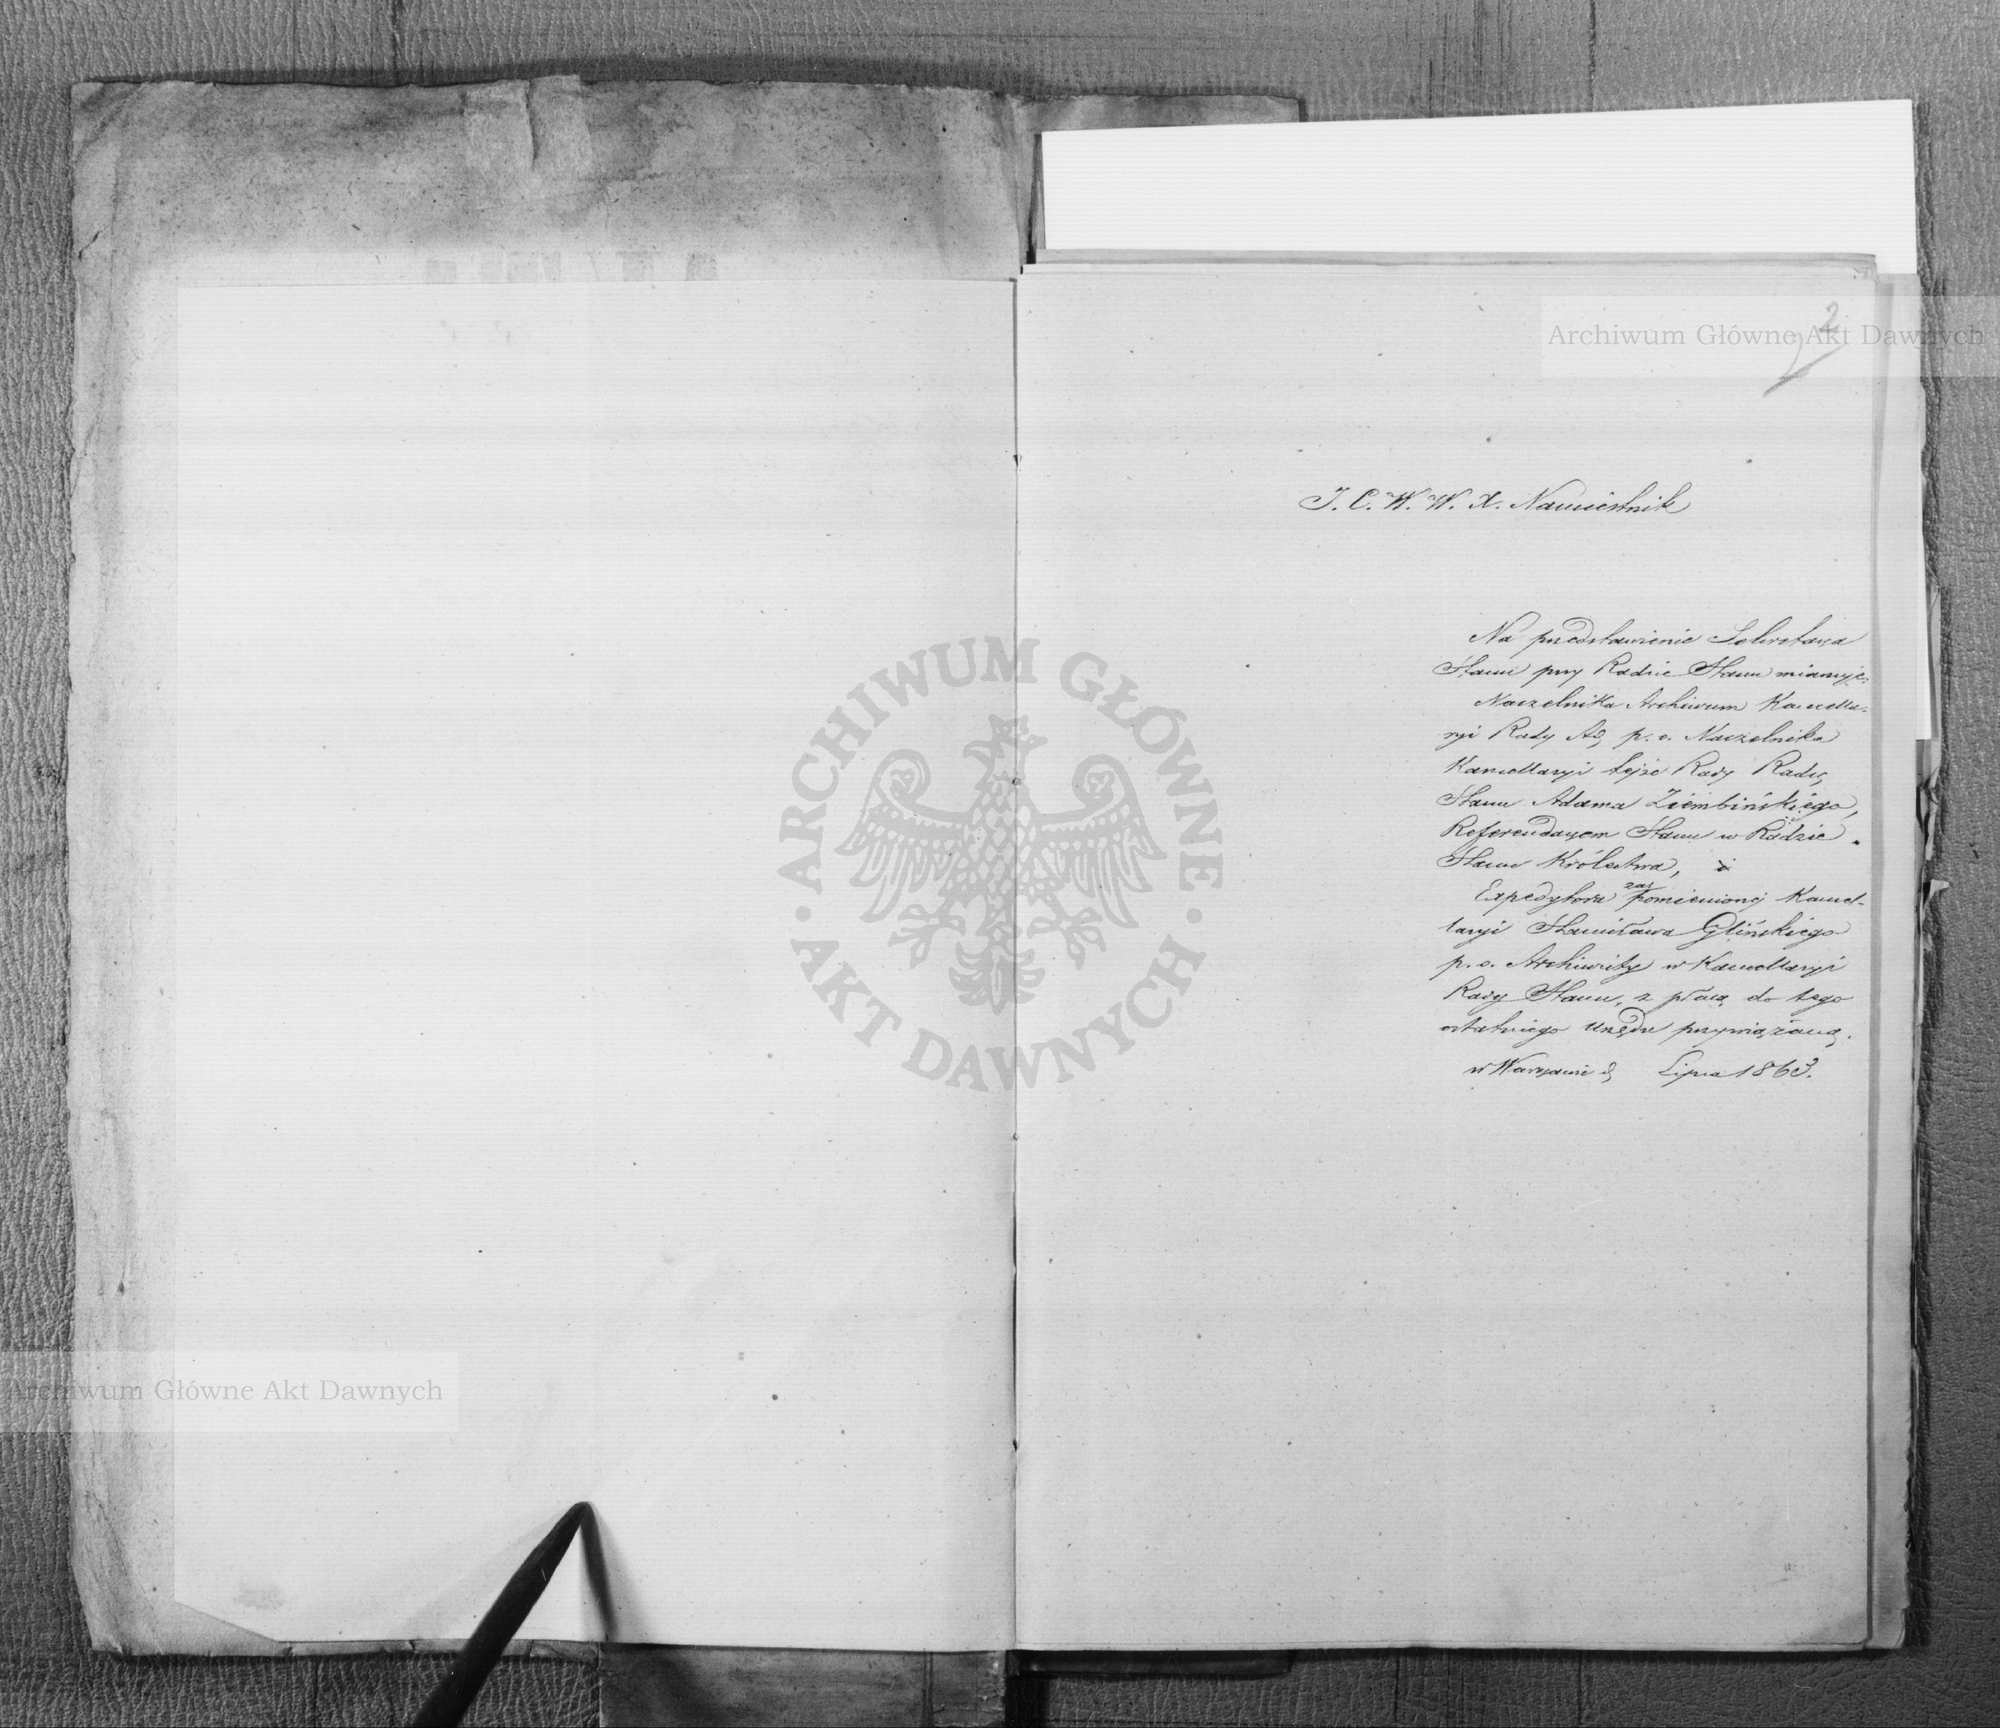 2
J. C. W. W. X. Namiestnik
Na przedstawienie Sekretarza
Stanu przy Radzie Stanu mianuje:
Naczelnika Archiwum Kancella-
ryi Rady Ad, p. o. Naczelnika
Kancellaryi tejże Rady Radcę
Stanu Adama Ziembińskiego,
Referendarzem Stanu w Radzie
Stanu Królestwa, i
Expedytora zaś pomienionej Kancel-
laryi Stanisława Glińskiego
p. o. Archiwisty w Kancellaryi
Rady Stanu, z płacą do tego
ostatniego Urzędu przywiązaną.
w Warszawie d, Lipca 1863.
Archiwum Główne Akt Dawnych
ARCHIWUM GŁÓWNE
AKT DAWNYCH
Archiwum Główne Akt Dawnych